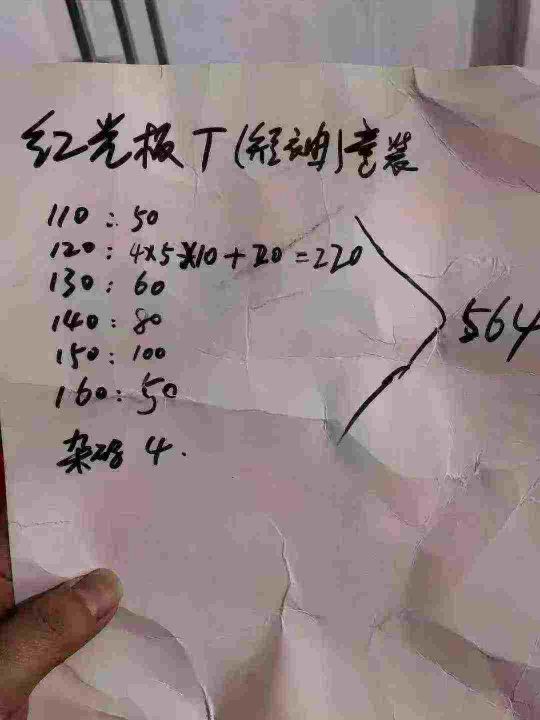 红光板T(短袖)童装
110:50
120:4×5×10+20=220
130:60
140:80
150:100
160:50
杂码 4.
564